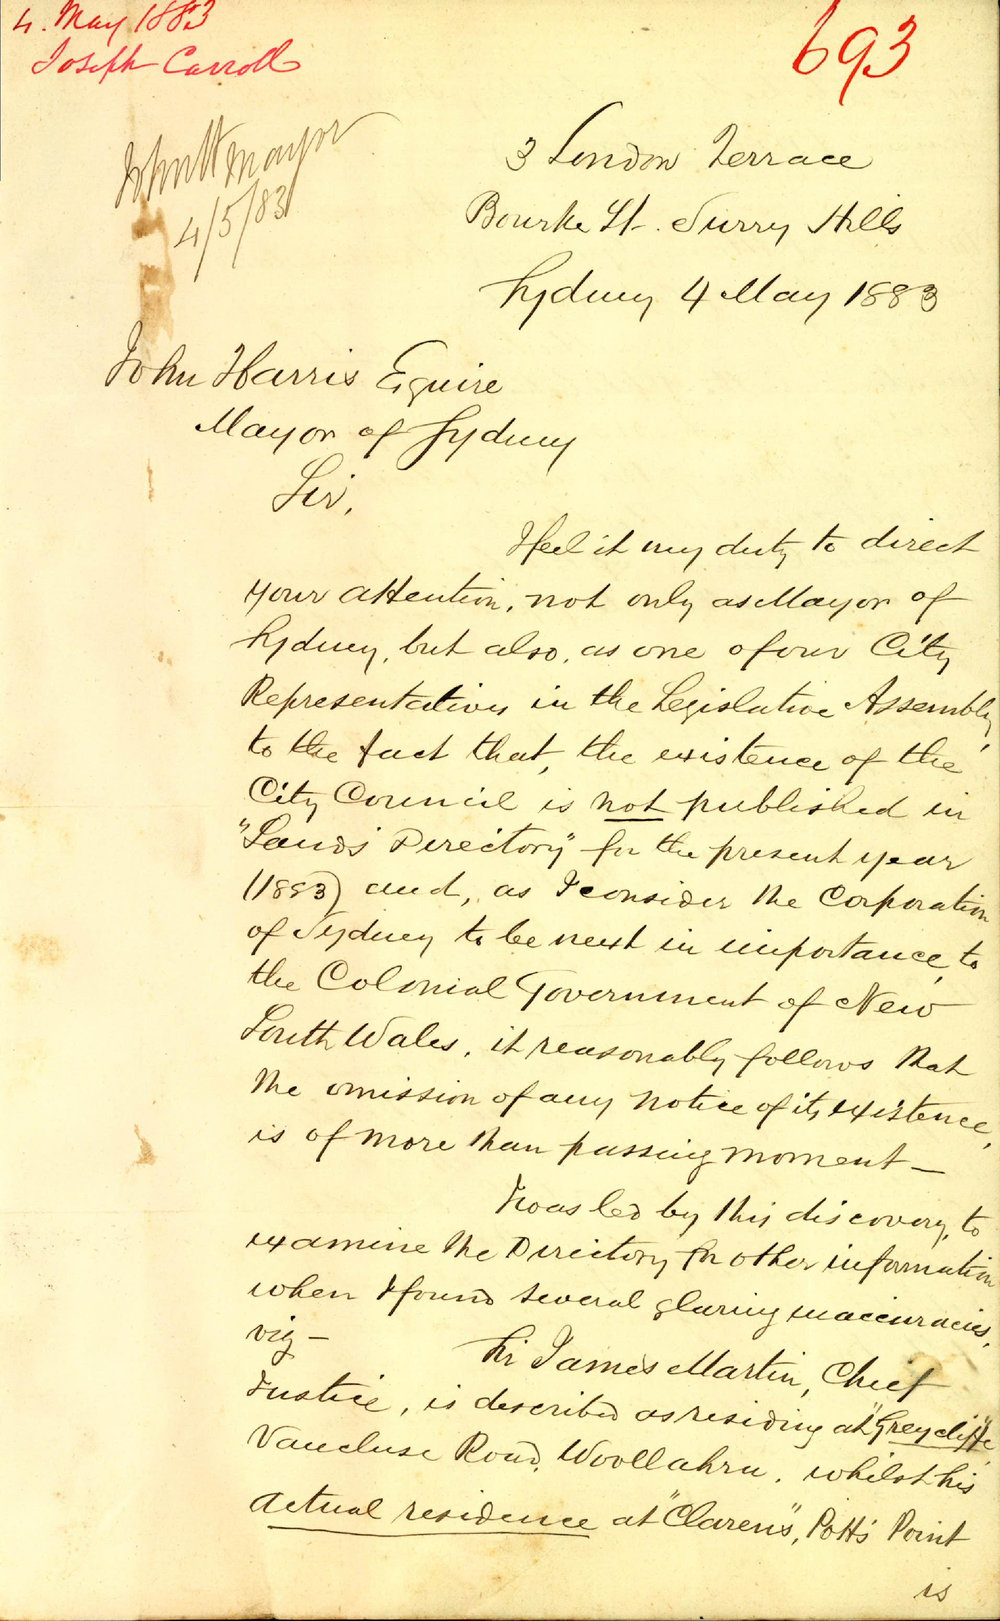 4. May 1883
Joseph Carroll
693
John H Mayor
4/5/83
3 London Terrace
Bourke St. Surry Hills
Sydney 4 May 1883
John Harris Esquire
Mayor of Sydney
Sir,
I feel it my duty to direct
your attention, not only as Mayor of
Sydney, but also, as one of our City
Representatives in the Legislative Assembly,
to the fact that, the existence of the
City Council is not published in
"Sands Directory" for the present year
(1883) and, as I consider the Corporation
of Sydney to be next in importance, to
the Colonial Government of New
South Wales, it reasonably follows that
the omission of any notice of its existence,
is of more than passing moment —
I was led by this discovery, to
examine the Directory for other information
when I found several glaring inaccuracies,
viz —
Sir James Martin, Chief
Justice, is described as residing at "Greycliffe"
Vaucluse Road, Woollahra, whilst his
actual residence at "Clarens", Potts Point
is